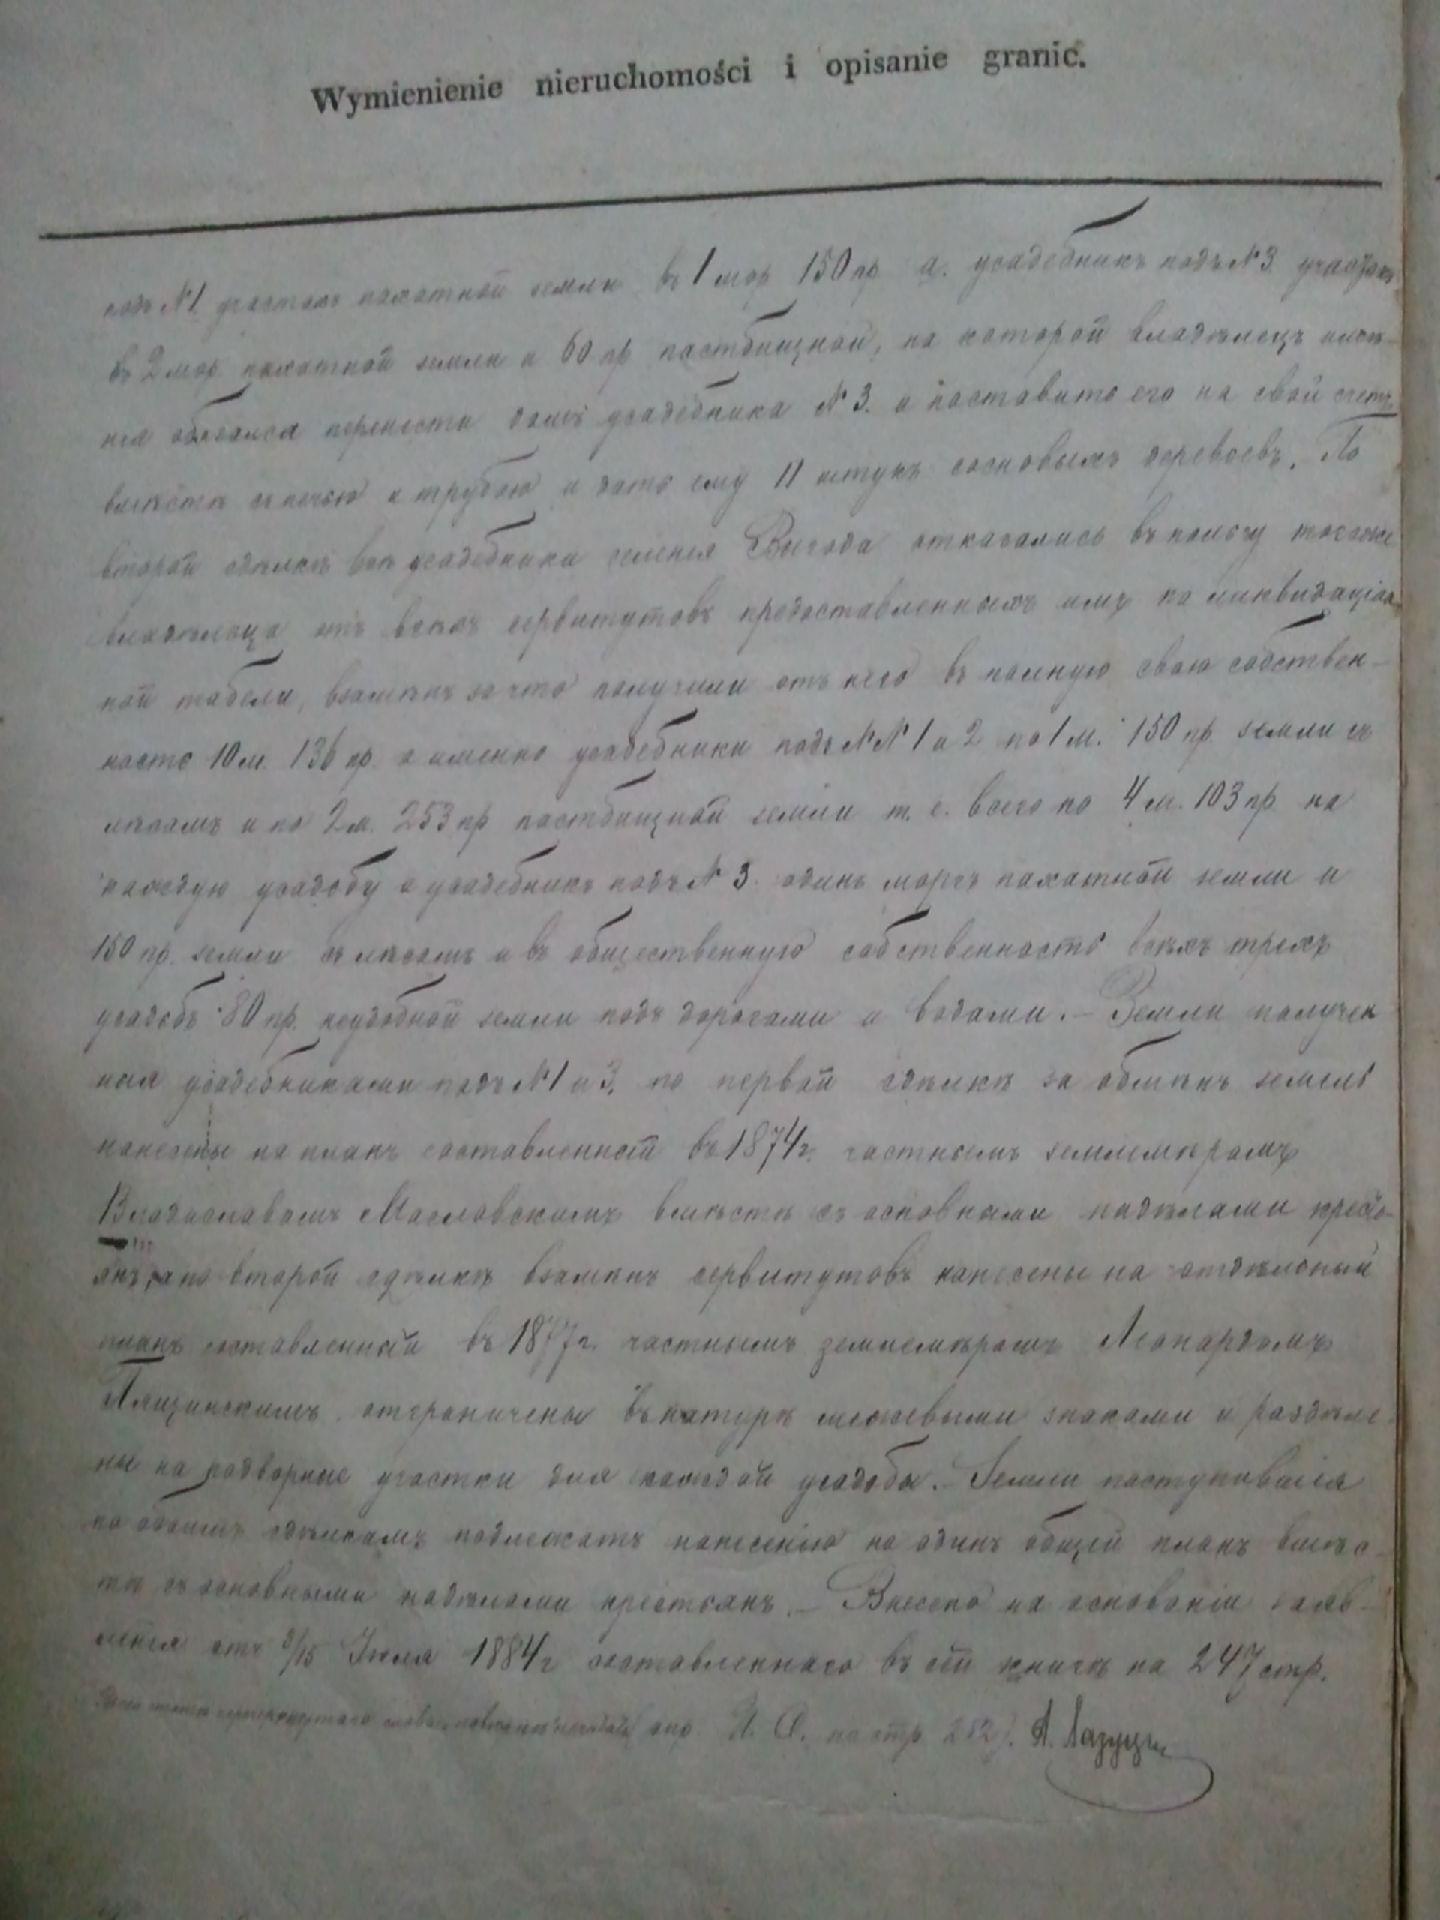 Wymienienie nieruchomości i opisanie granic.
подъ №1 участокъ пахатной земли въ 1 мор 150 пр. а. усадебникъ подъ №3 участокъ
въ 2 мор. пахатной земли и 60 пр пастбищной, на которой владѣлецъ имѣ-
нія обязался перенести домъ усадебника № 3. и поставить его на свой счетъ
вмѣстѣ съ печью и трубою и дать ему 11 штукъ сосновыхъ деревьевъ. По
второй сдѣлкѣ всѣ усадебники селенія Выгода отказались въ пользу тогоже
владѣльца отъ всѣхъ сервитутовъ предоставленныхъ имъ по ликвидаціон
ной табели, взамѣнъ за что получили отъ него въ полную свою собствен-
ность 10 м. 136 пр. а именно усадебники подъ №№ 1 и 2 по 1 м. 150 пр. земли съ
лѣсомъ и по 2 м. 253 пр пастбищной земли т. е. всего по 4 м. 103 пр на
каждую усадьбу а усадебникъ подъ № 3. одинъ моргъ пахатной земли и
150 пр. земли съ лѣсомъ и въ общественную собственность всѣхъ трехъ
усадьбъ 80 пр. неудобной земли подъ дорогами и водами. – Земли получен
ныя усадебниками подъ №1 и 3. по первой сдѣлкѣ за обмѣнъ земель
нанесены на планъ составленный въ 1874 г. частнымъ землемѣромъ
Владиславомъ Масловскимъ вмѣстѣ съ основными надѣлами кресть-
янъ, а по второй сдѣлкѣ взамѣнъ сервитутовъ нанесены на отдѣльный
планъ составленный въ 1877 г. частнымъ землемѣромъ Леонардомъ
отграничены въ натурѣ межевыми знаками и раздѣле
ны на подворные участки для каждой усадьбы. – Земли поступившія
по обоимъ сдѣлкамъ подлежатъ нанесенію на одинъ общій планъ вмѣс-
тѣ съ основными надѣлами крестьянъ. – Внесено на основаніи заяв-
ленія отъ 3/15 Іюля 1884 г составленнаго въ сей книгѣ на 247 стр.
И. О. на стр 252). А.